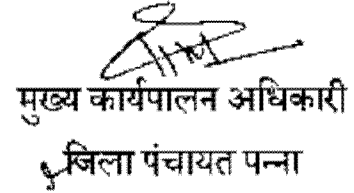 मुख्य कार्यपालन अधिकारी
जिला पंचायत पन्ना